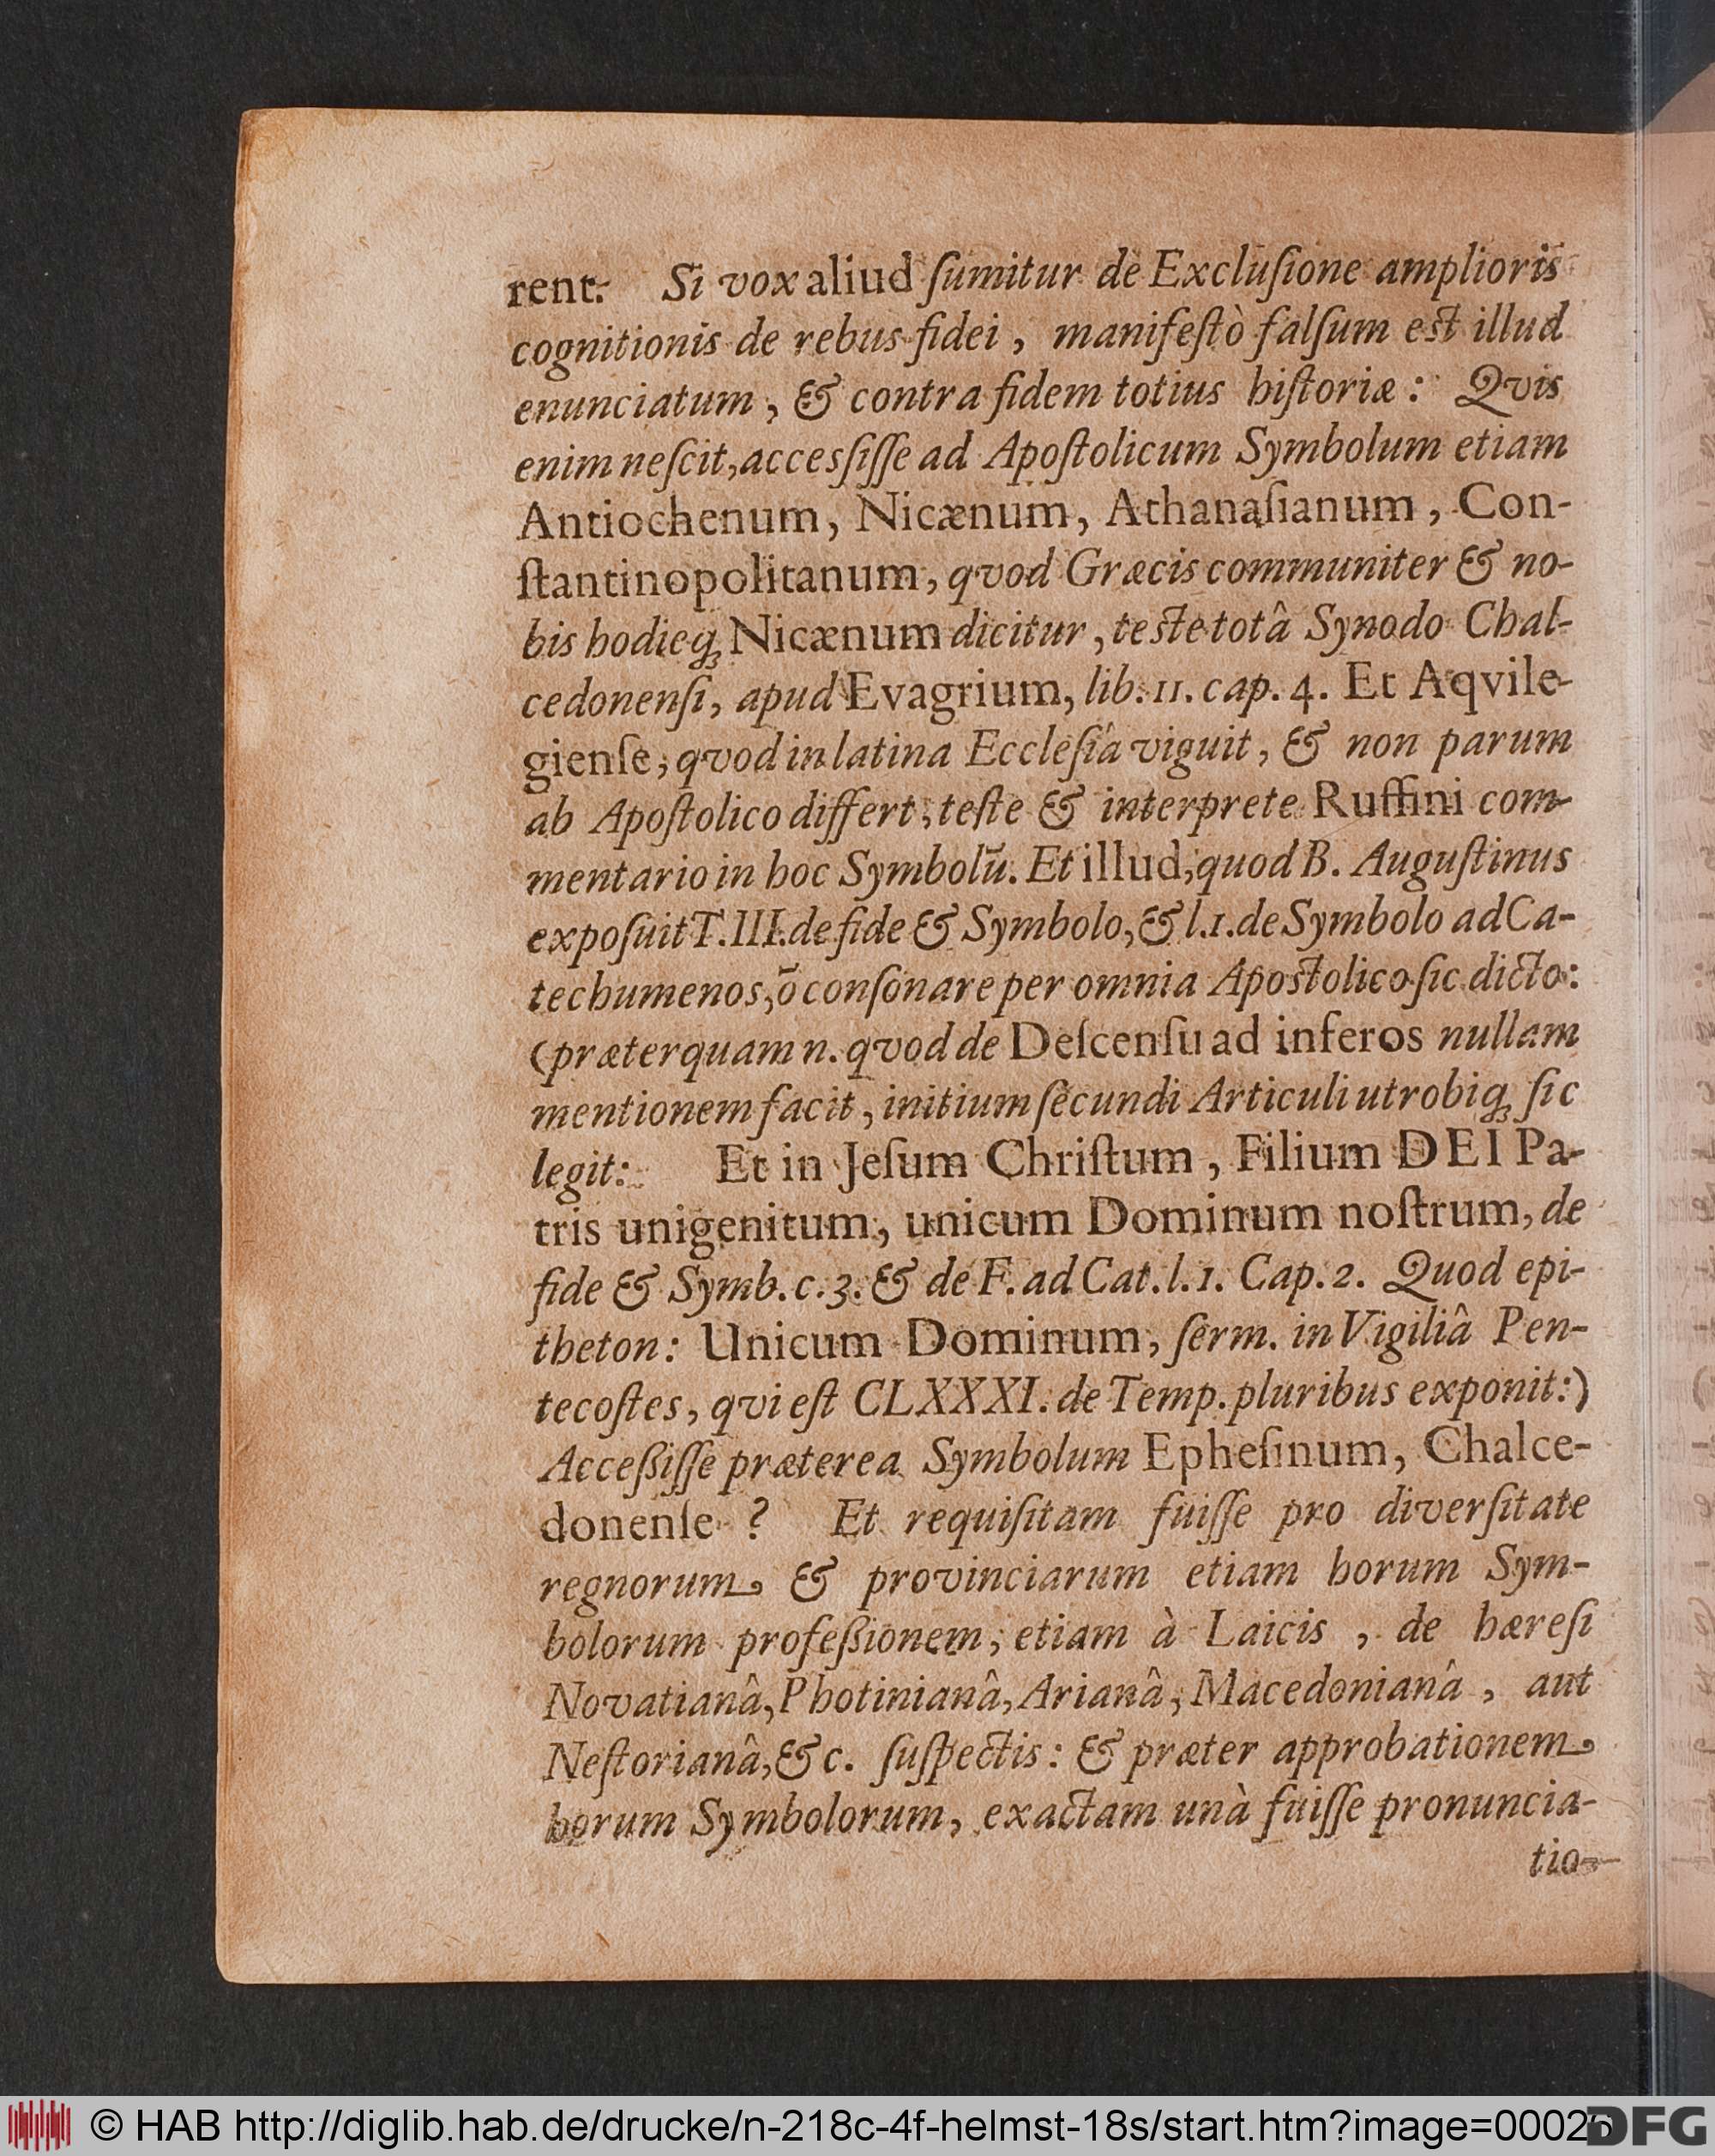 rent. Si vox aliud ſumitur de Excluſione amplioris
cognitionis de rebus fidei, manifeſtò falſum eſt illud
enunciatum, & contra fidem totius hiſtoriæ: Qvis
enim neſcit, accesſiſſe ad Apoſtolicum Symbolum etiam
Antiochenum, Nicænum, Athanaſianum, Con-
ſtantinopolitanum, qvod Græcis communiter & no-
bis hodieq́ꝫ Nicænum dicitur, teſte totâ Synodo Chal-
cedonenſi, apud Evagrium, lib. 11. cap. 4. Et Aqvile-
gienſe, qvod in latina Eccleſiâ viguit, & non parum
ab Apoſtolico differt, teſte & interprete Ruffini com-
mentario in hoc Symbolū. Et illud, quod B. Auguſtinus
expoſuit T. III. de fide & Symbolo, & l. 1. de Symbolo ad Ca-
techumenos, õ conſonare per omnia Apoſtolico ſic dicto:
(præterquam n. qvod de Deſcenſu ad inferos nullam
mentionem facit, initium ſecundi Articuli utrobiq́ꝫ ſic
legit: Et in Jeſum Chriſtum, Filium DEI Pa-
tris unigenitum, unicum Dominum noſtrum, de
fide & Symb. c. 3. & de F. ad Cat. l. 1. Cap. 2. Quod epi-
theton: Unicum Dominum, ſerm. in Vigiliâ Pen-
tecoſtes, qvi eſt CLXXXI. de Temp. pluribus exponit:)
Acceßiſſe præterea Symbolum Epheſinum, Chalce-
donenſe? Et requiſitam fuiſſe pro diverſitate
regnorum, & provinciarum etiam horum Sym-
bolorum profeßionem, etiam à Laicis, de hæreſi
Novatianâ, Photinianâ, Arianâ, Macedonianâ, aut
Neſtorianâ, &c. ſuſpectis: & præter approbationem,
horum Symbolorum, exactam unà fuiſſe pronuncia-
tio-
© HAB http://diglib.hab.de/drucke/n-218c-4f-helmst-18s/start.htm?image=00026
DFG